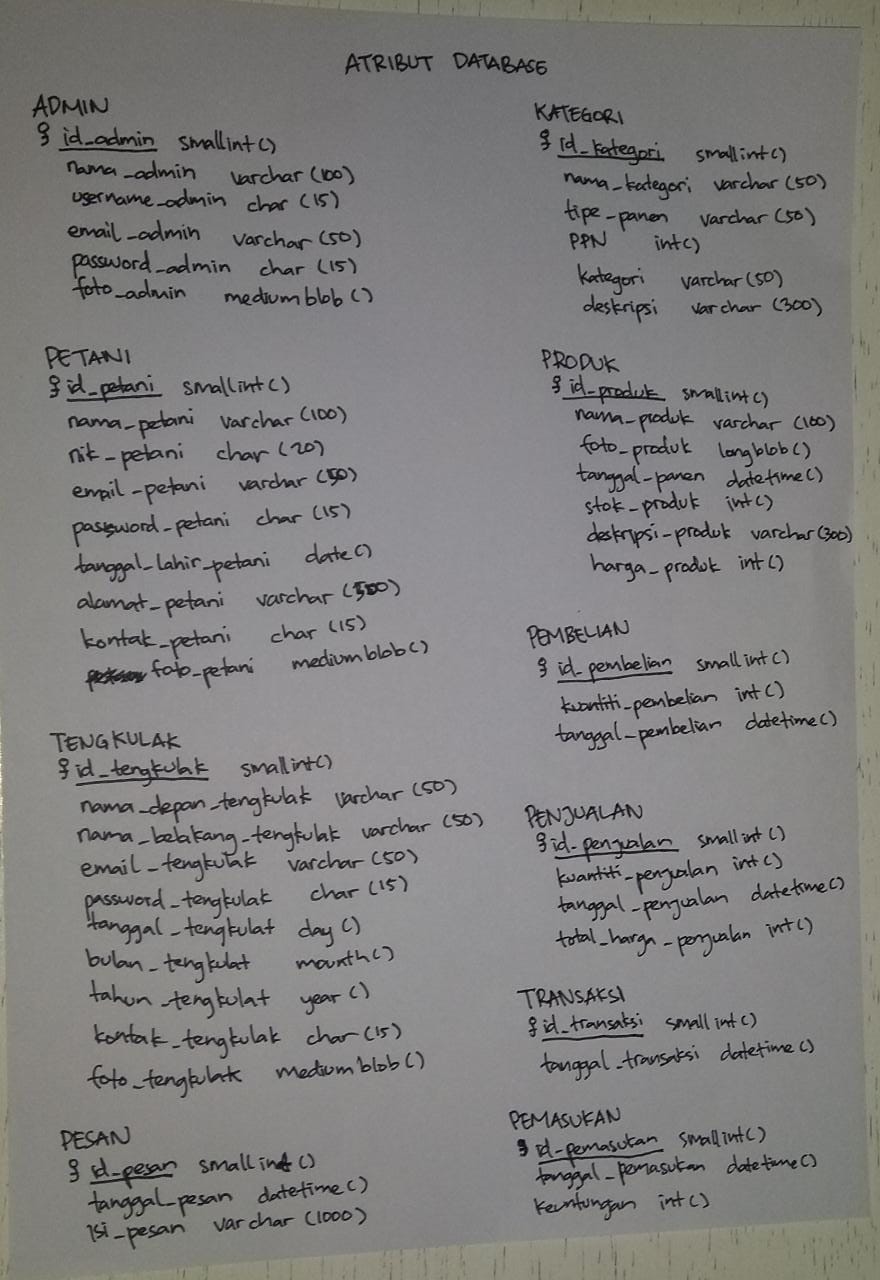 ATRIBUT DATABASE
ADMIN
id_admin smallint()
nama_admin varchar(100)
username_admin char(15)
email_admin varchar(50)
password_admin char(15)
foto_admin mediumblob()
PETANI
id_petani smallint()
nama_petani varchar(100)
nik_petani char(20)
email_petani varchar(50)
password_petani char(15)
tanggal_lahir_petani date()
alamat_petani varchar(300)
kontak_petani char(15)
foto_petani mediumblob()
TENGKULAK
id_tengkulak smallint()
nama_depan_tengkulak varchar(50)
nama_belakang_tengkulak varchar(50)
email_tengkulak varchar(50)
password_tengkulak char(15)
tanggal_tengkulat day()
bulan_tengkulat mounth()
tahun_tengkulat year()
kontak_tengkulak char(15)
foto_tengkulak mediumblob()
PESAN
id_pesan smallint()
tanggal_pesan datetime()
isi_pesan varchar(1000)
KATEGORI
id_kategori smallint()
nama_kategori varchar(50)
tipe_panen varchar(50)
PPN int()
kategori varchar(50)
deskripsi varchar(300)
PRODUK
id_produk smallint()
nama_produk varchar(100)
foto_produk longblob()
tanggal_panen datetime()
stok_produk int()
deskripsi_produk varchar(300)
harga_produk int()
PEMBELIAN
id_pembelian smallint()
kuantiti_pembelian int()
tanggal_pembelian datetime()
PENJUALAN
id_penjualan smallint()
kuantiti_penjualan int()
tanggal_penjualan datetime()
total_harga_penjualan int()
TRANSAKSI
id_transaksi smallint()
tanggal_transaksi datetime()
PEMASUKAN
id_pemasukan smallint()
tanggal_pemasukan datetime()
keuntungan int()